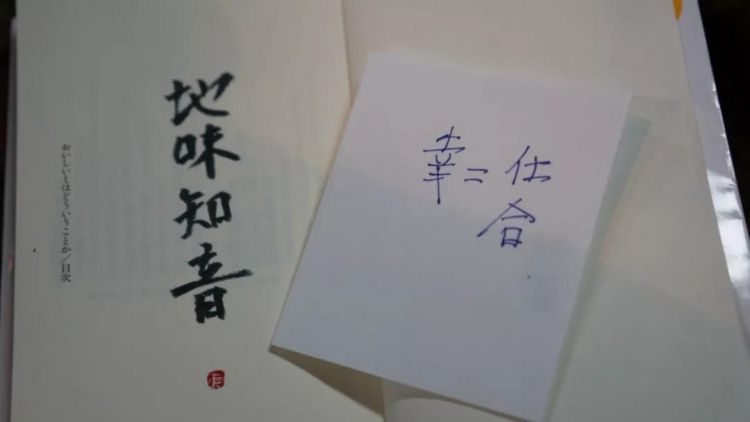 地味知音
おいしいとはどういうことか/目次
幸=仕
合